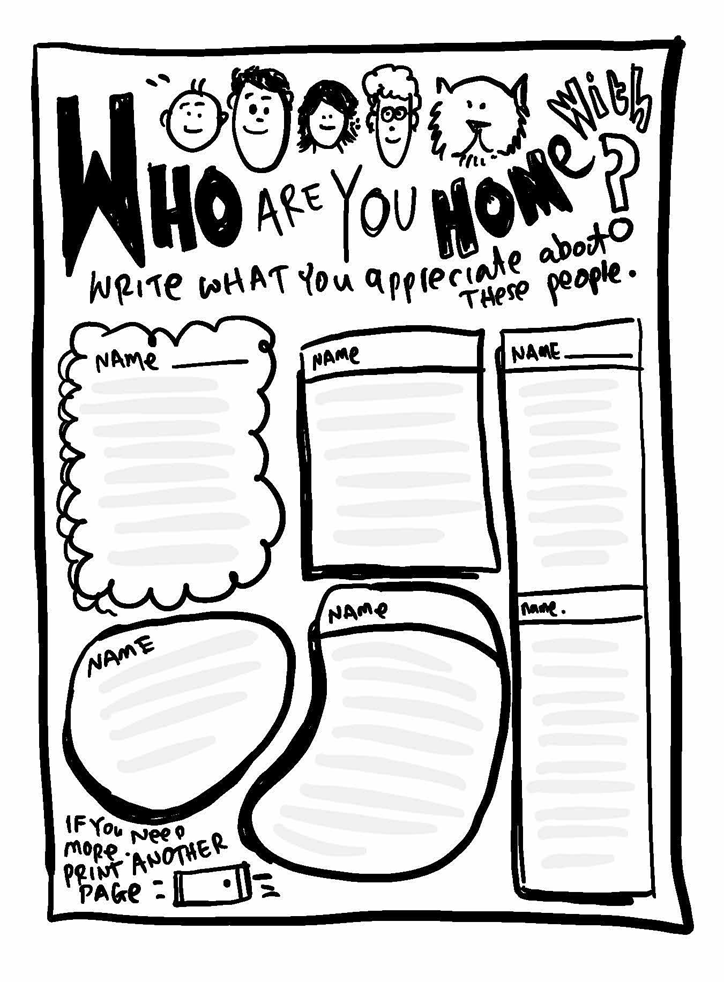 WHO ARE YOU HOMe With?
WRITe WHAT YOU appreciate about
THese people.
NAMe
NAMe
NAME
NAME
NAMe
name.
IF YOU NeeD
MORe.
PRINT ANOTHER
PAGe